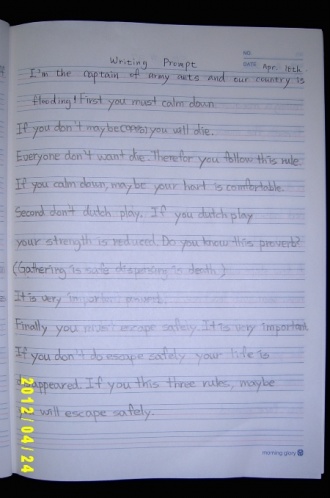 Writing Prompt
NO.
DATE Apr. 18th.
I'm the captain of army ants and our country is
flooding! First you must calm down.
If you don't maybe you will die.
Everyone don't want die. Therefor you follow this rule.
If you calm down, maybe your hart is comfortable.
Second don't dutch play. If you dutch play
your strength is reduced. Do you know this proverb?
(Gathering is safe dispersing is death.)
It is very important proverb.
Finally you must escape safely. It is very important.
If you don't do escape safely your life is
disappeared. If you this three rules, maybe
will escape safely.
morning glory
2012/04/24